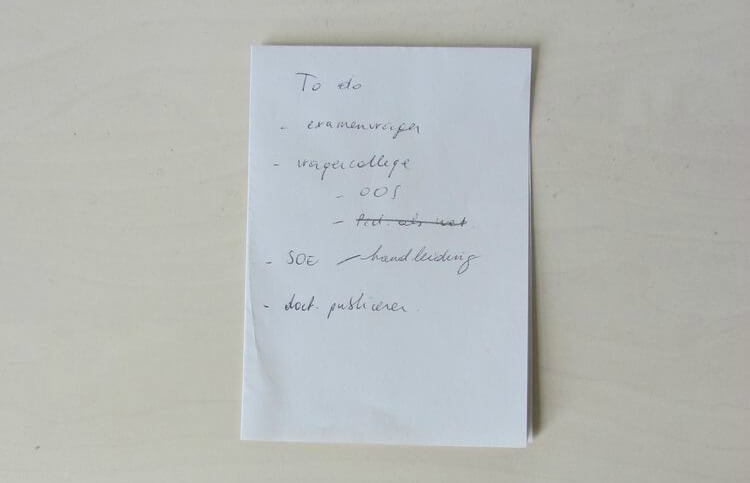 To do
- examenvragen
- vragencollege
- OOS
- als
- SOE - handleiding
- doct. publiceren.